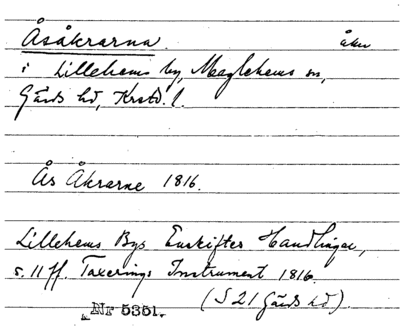 Åsåkrarna. åker
i Lillehems by, Maglehems sn,
Gärds hd, Krstd. l.
Ås Åkrarne 1816.
Lillehems Bys Enskiftes Handlingar,
s. 11 ff. Taxerings Instrument 1816.
(S 21 Gärds hd).
Nr 5351.